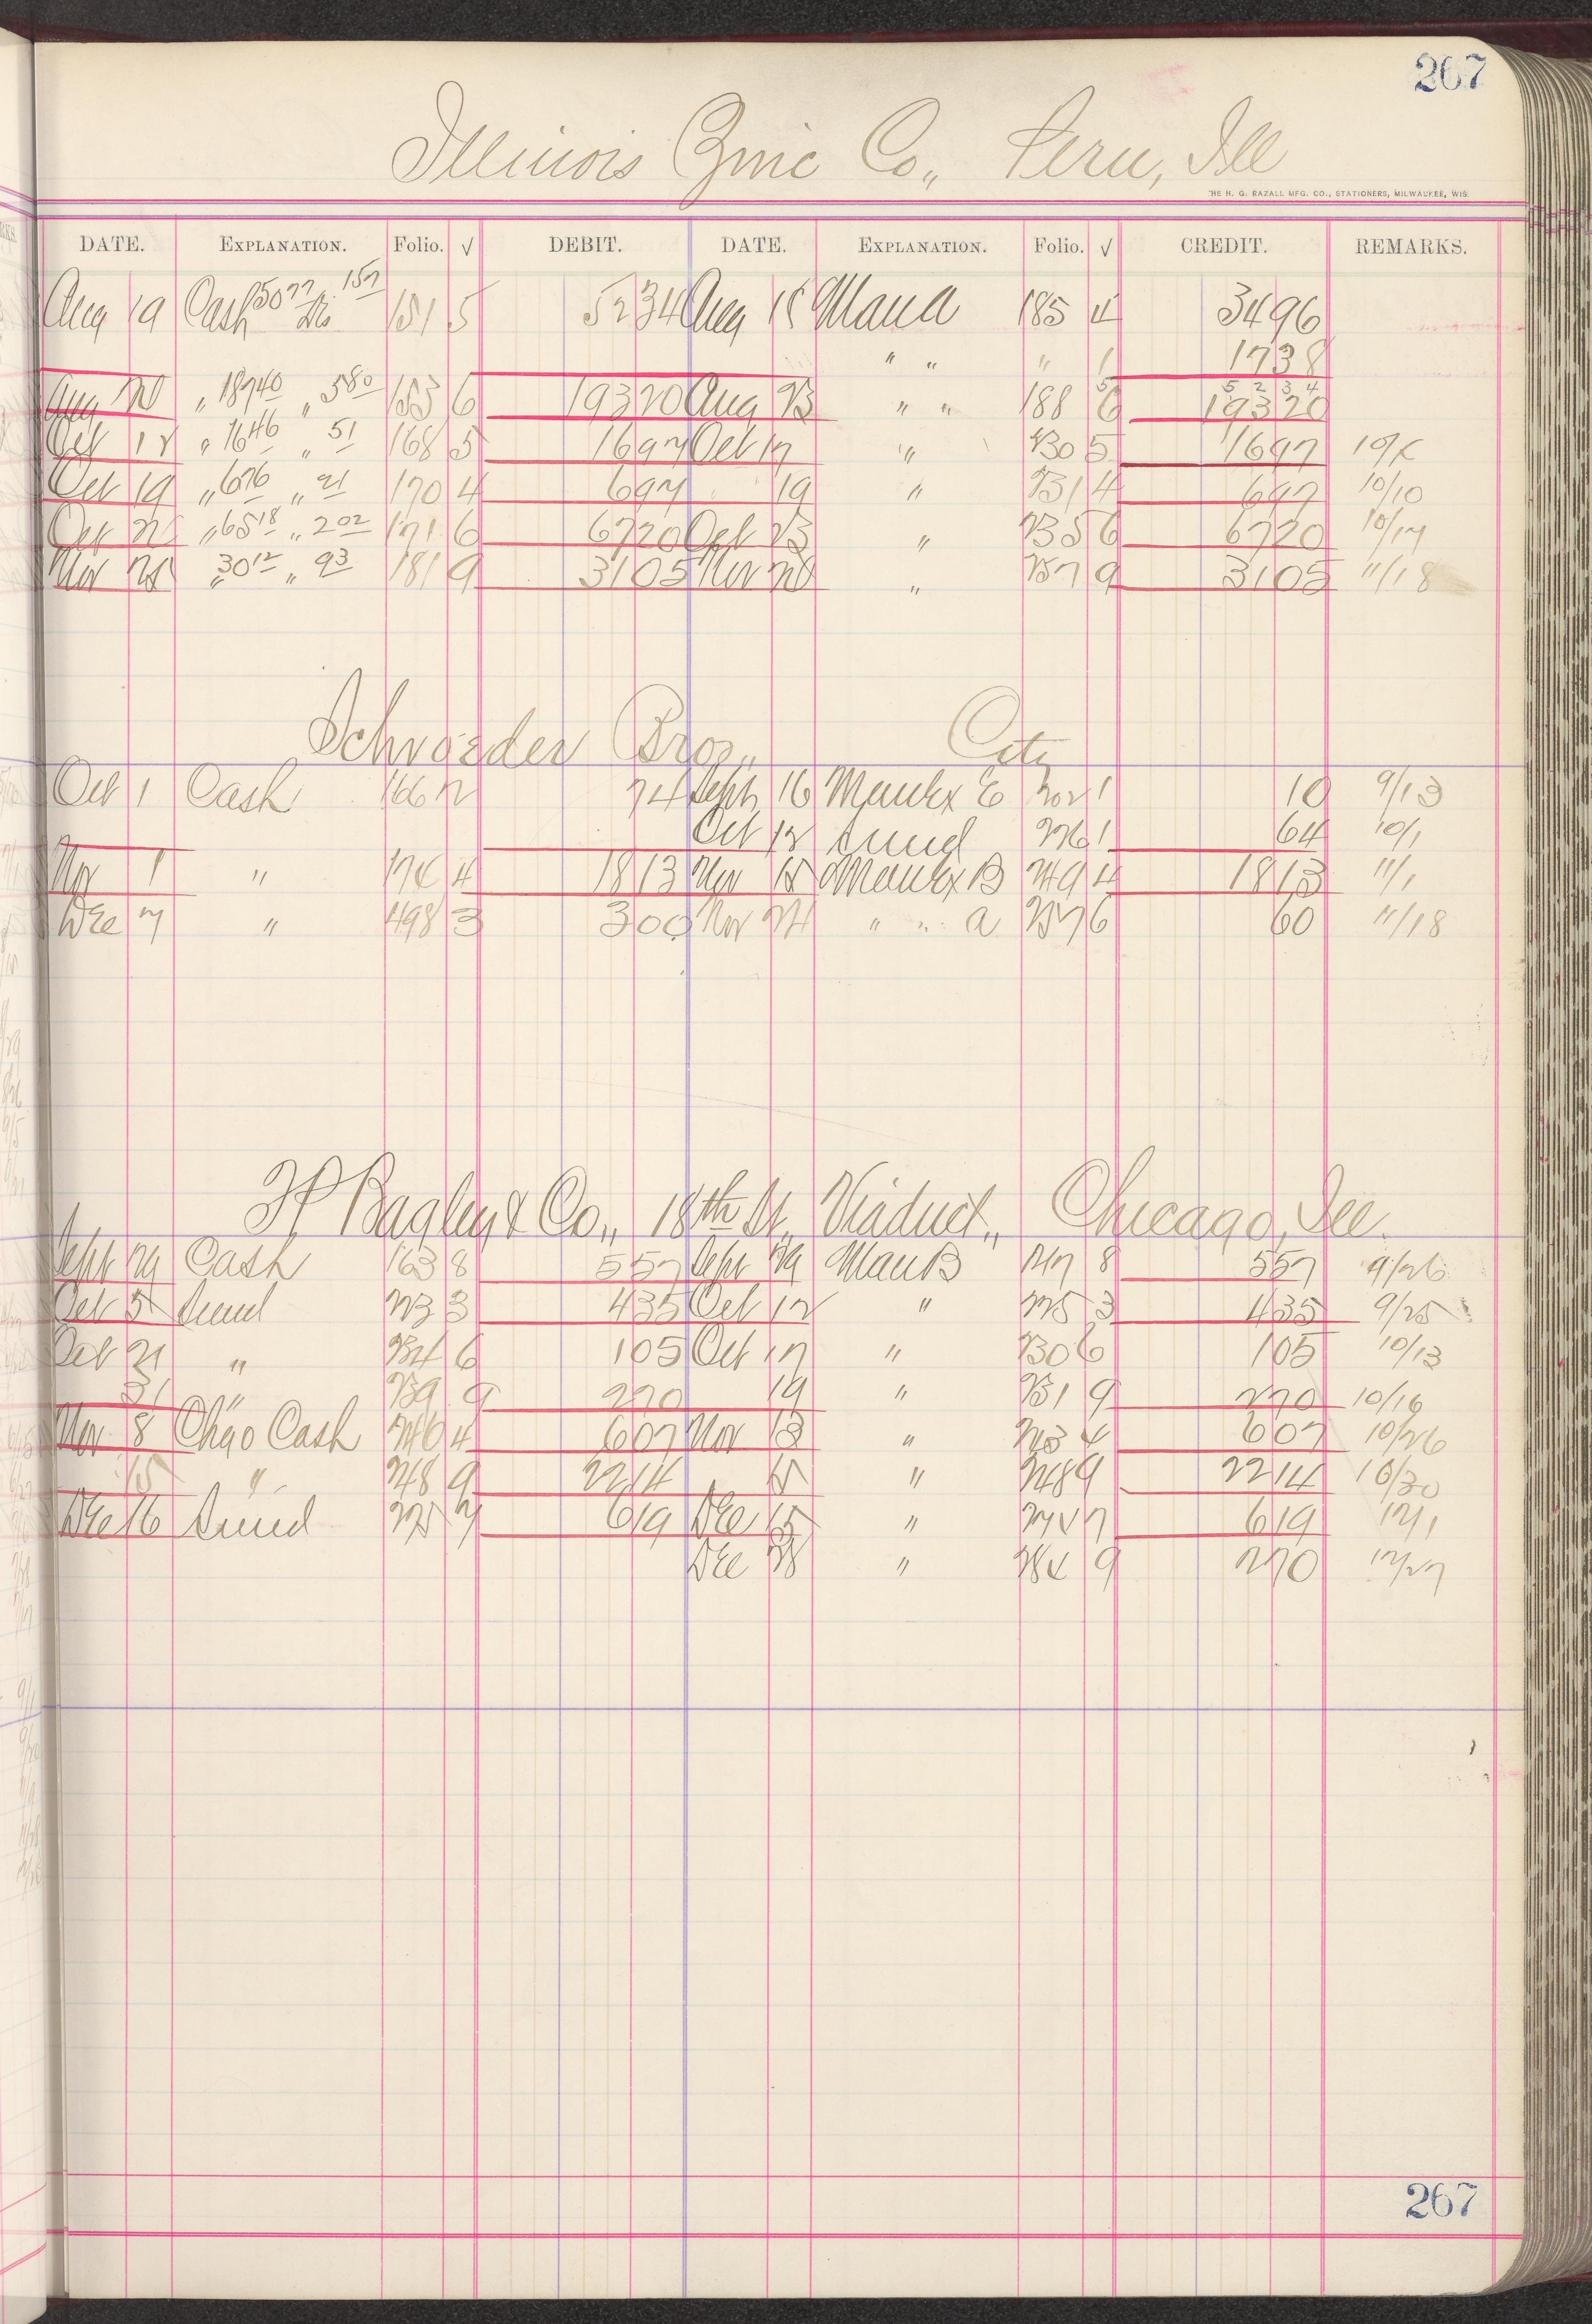 267
Illinois Zinc Co., Peru, Ill
THE H. G. RAZALL MFG. CO., STATIONERS, MILWAUKEE, WIS.
DATE. EXPLANATION. Folio. √ DEBIT. DATE. EXPLANATION. Folio. √ CREDIT. REMARKS.
Aug 19 Cash 5077 Dis 157 151 5 5234 Aug 18 Manu 185 4 3496
" " " 1 1738
5 2 3 4
Aug 20 " 18740 " 580 153 6 19320 Aug 23 " " 188 6 19320
Oct 12 " 1646 " 51 168 5 1697 Oct 17 " 230 5 1697
Oct 19 " 676 " 21 170 4 697 19 " 231 4 697 10/10
Oct 25 " 6518 " 202 171 6 6720 Oct 23 " 235 6 6720 10/17
Nov 25 " 3012 " 93 181 9 3105 Nov 20 " 257 9 3105 11/18
Schroeder Bros., City
Oct 1 Cash 166 2 74 Sept 16 E 202 1 10 9/13
Oct 12 Sund 226 1 64 10/1
Nov 1 " 4 1813 Nov 15 B 249 4 1813 11/1
Dec 7 " 498 3 300 Nov 24 " " a 257 6 60 11/18
Bagley & Co., 18th St. Viaduct, Chicago, Ill.
Sept 29 Cash 163 8 557 Sept 29 Manu B 217 8 557 9/26
Oct 5 Sund 223 3 435 Oct 12 " 225 3 435 9/25
Oct 21 " 234 6 105 Oct 17 " 230 6 105 10/13
31 " 239 9 270 19 " 231 9 270 10/16
Nov 8 Chgo Cash 246 4 607 Nov 13 " 4 607 10/26
15 " 248 9 2214 15 " 248 9 2214 10/30
Dec 16 Sund 275 7 619 Dec 15 " 7 619 12/1
Dec 28 " 284 9 270 12/27
267